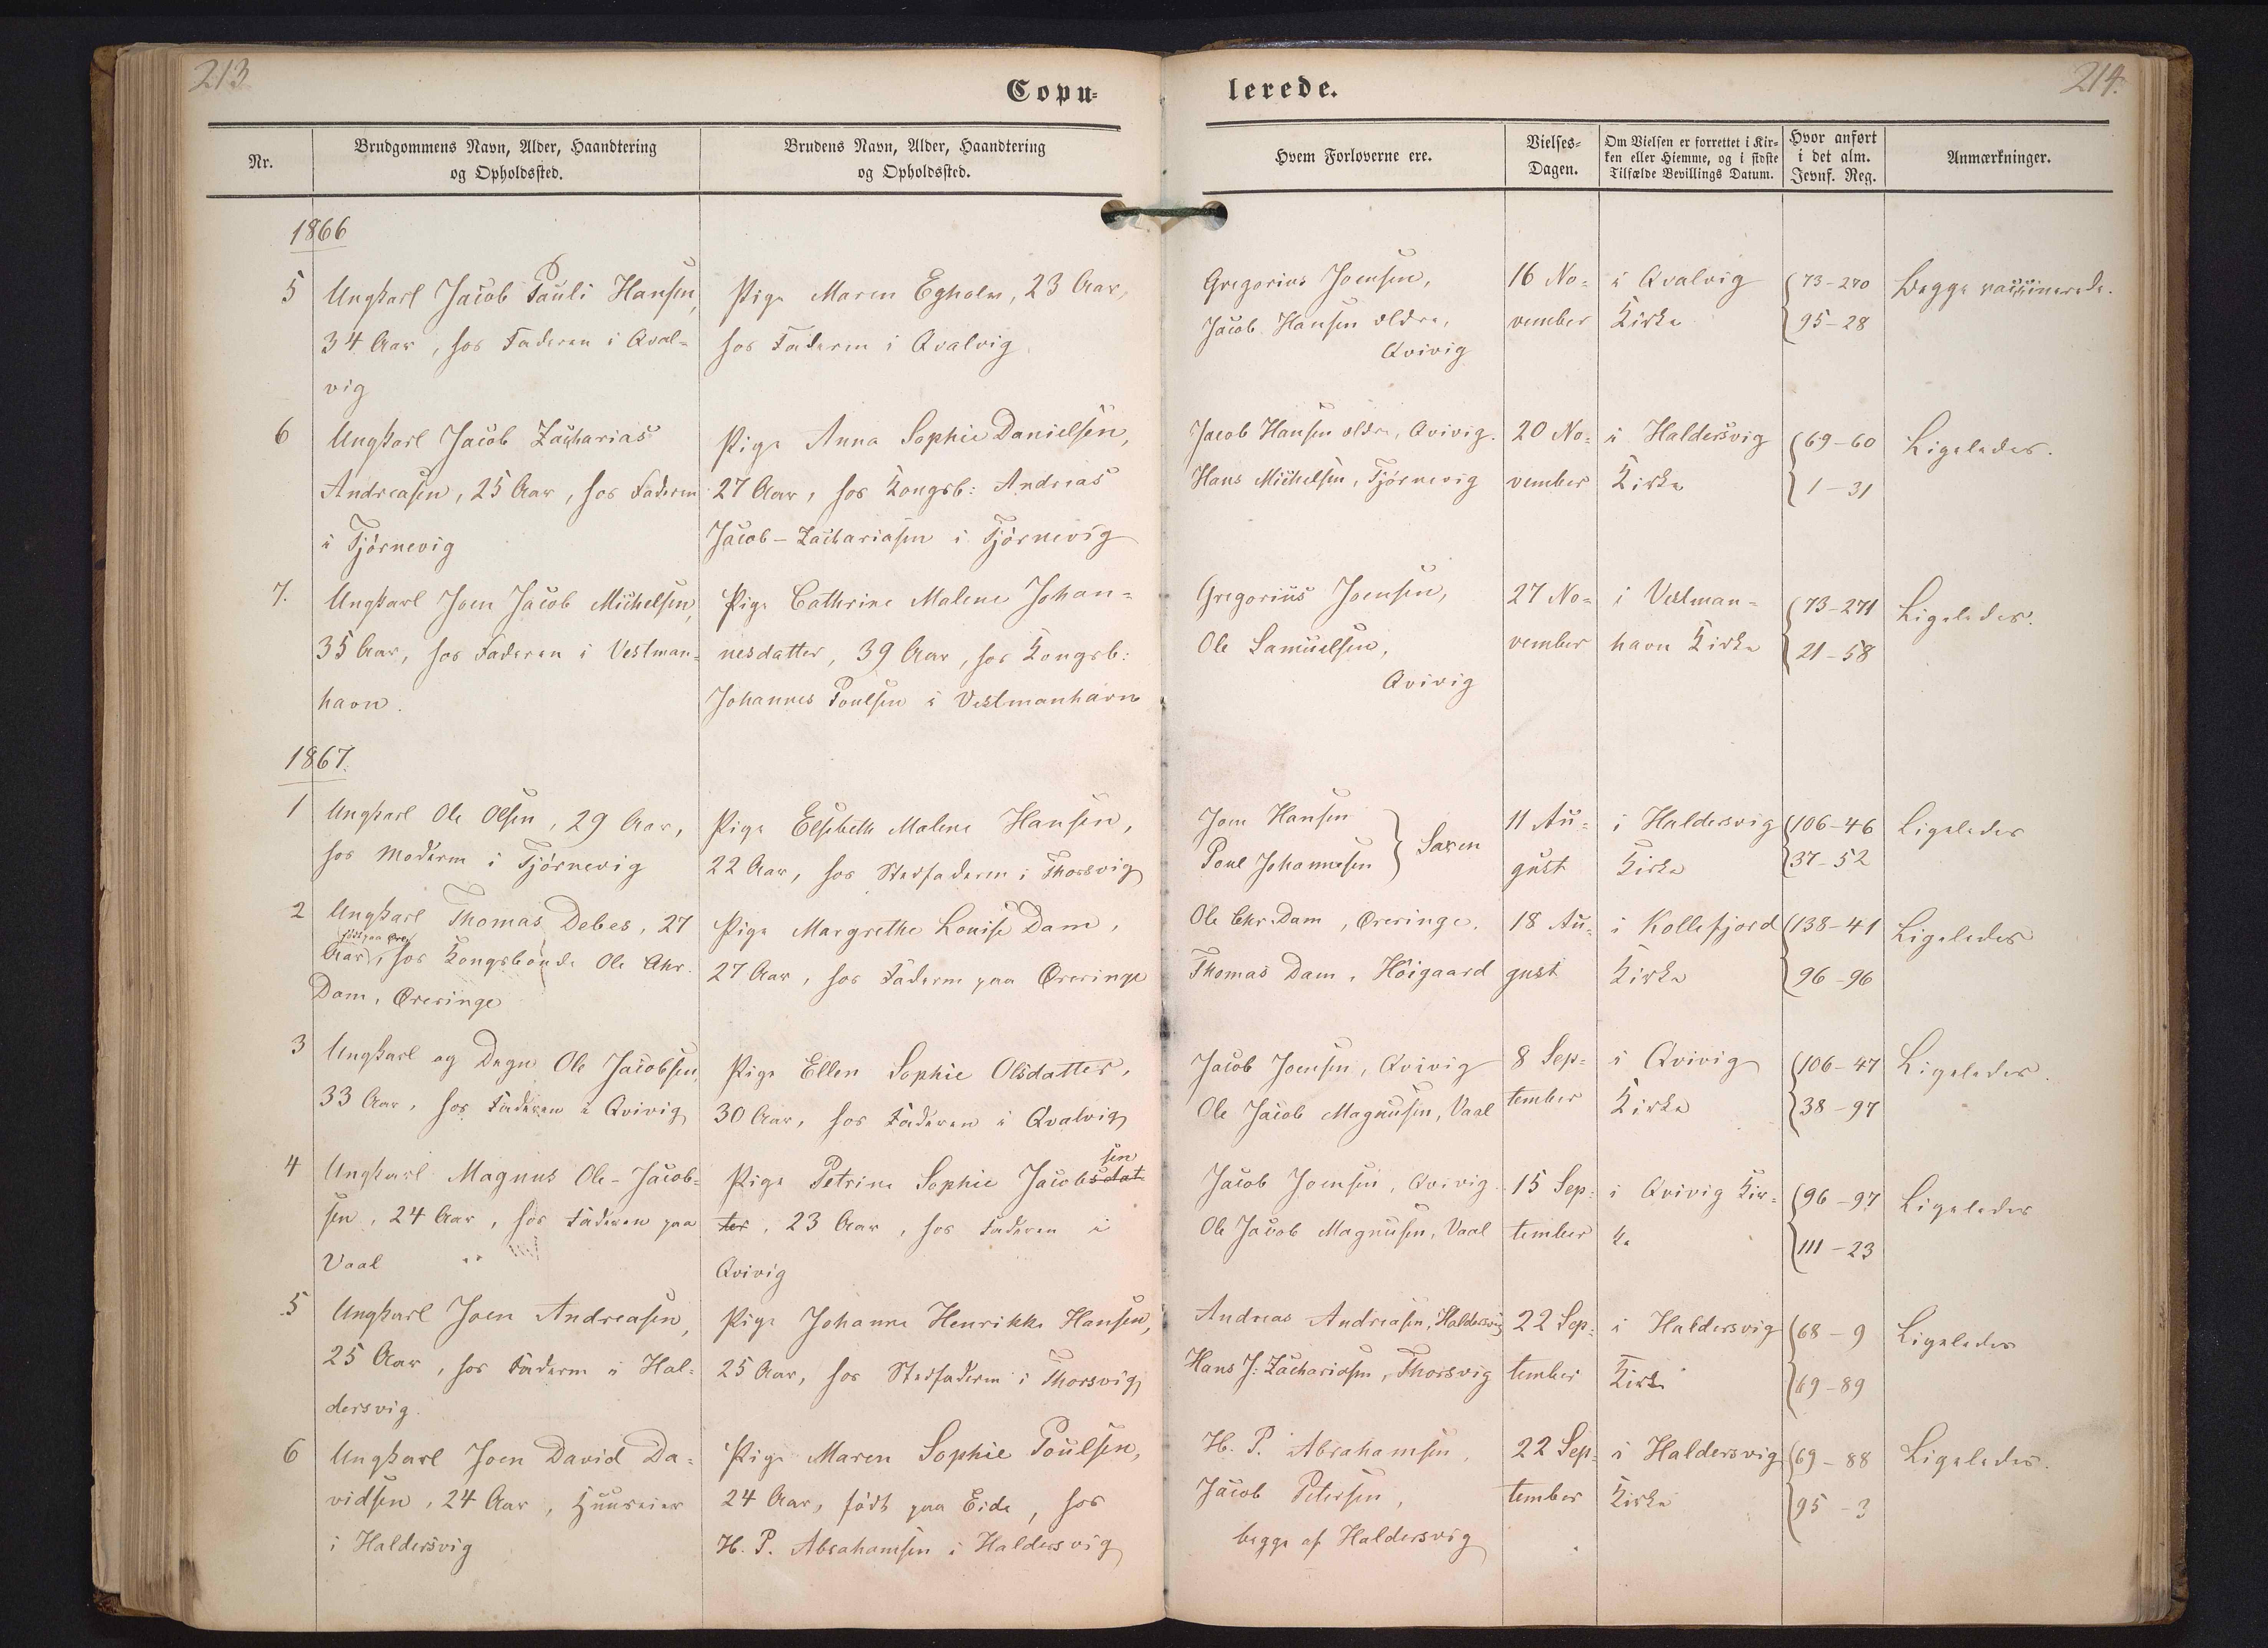 213
214.
Copu=
lerede.
Nr.
Brudgommens Navn, Alder, Haandtering
og Opholdssted.
Brudens Navn, Alder, Haandtering
og Opholdssted.
Hvem Forloverne ere.
Vielses-
Dagen.
Om Vielsen er forrettet i Kir-
ken eller Hiemme, og i sidste
Tilfælde Bevillings Datum.
Hvor anført
i det alm.
Jevnf. Reg.
Anmærkninger.
1866
5
Ungkarl Jacob Pauli Hansen,
34 Aar, hos Faderen i Qval=
vig
Pige Maren Egholm, 23 Aar,
hos Faderen i Qvalvig
Gregorius Joensen,
Jacob Hansen ældre,
Qvivig
16 No=
vember
i Qvalvig
Kirke
73-270
95-28
Begge vaccinerede.
6
Ungkarl Jacob Zacharias
Andreasen, 25 Aar, hos Faderen
i Tjørnevig
Pige Anna Sophie Danielsen,
27 Aar, hos Kongsb: Andreas
Jacob-Zachariasen i Tjørnevig
Jacob Hansen ældre, Qvivig.
Hans Michelsen, Tjørnevig
20 No=
vember
i Haldersvig
Kirke
69-60
1-31
Ligeledes.
7.
Ungkarl Joen Jacob Michelsen,
35 Aar, hos Faderen i Vestman=
havn.
Pige Cathrine Malene Johan=
nesdatter, 39 Aar, hos Kongsb:
Johannes Poulsen i Vestmanhavn
Gregorius Joensen,
Ole Samuelsen,
Qvivig
27 No=
vember
i Vestman=
havn Kirke
73-271
21-58
Ligeledes.
1867.
1
Ungkarl Ole Olsen, 29 Aar,
hos Moderen i Tjørnevig
Pige Elsebeth Malene Hansen,
22 Aar, hos Stedfaderen i Thorsvig
Joen Hansen
Poul Johannesen } Saxen
11 Au=
gust
i Haldersvig
Kirke
106-46
37-52
Ligeledes
2
Ungkarl Thomas Debes, 27
født paa
Aar, hos Kongsbonde Ole Chr.
Dam, Øreringe
Pige Margrethe Louise Dam,
27 Aar, hos Faderen paa Øreringe
Ole Chr. Dam, Øreringe.
Thomas Dam, Høigaard
18 Au=
gust
i Kollefjord
Kirke
138-41
96-96
Ligeledes
3
Ungkarl og Degn Ole Jacobsen,
33 Aar, hos Faderen i Qvivig
Pige Ellen Sophie Olsdatter,
30 Aar, hos Faderen i Qvalvig
Jacob Joensen, Qvivig
Ole Jacob Magnusen, Vaal
8 Sep=
tember
i Qvivig
Kirke
106-47
38-97
Ligeledes.
4
Ungkarl Magnus Ole-Jacob=
sen, 24 Aar, hos Faderen paa
Vaal
sen
Pige Petrine Sophie Jacobsdat
ter, 23 Aar, hos Faderen i
Qvivig
Jacob Joensen, Qvivig.
Ole Jacob Magnusen, Vaal
15 Sep=
tember
i Qvivig Kir=
ke
96-97
111-23
Ligeledes
5
Ungkarl Joen Andreasen,
25 Aar, hos Faderen i Hal=
dersvig.
Pige Johanne Henrikke Hansen,
25 Aar, hos Stedfaderen i Thorsvig
Andreas Andreasen, Haldersvig
Hans J: Zachariasen, Thorsvig
22 Sep=
tember
i Haldersvig
Kirke
68-9
69-89
Ligeledes
6
Ungkarl Joen David Da=
vidsen, 24 Aar, Huuseier
i Haldersvig
Pige Maren Sophie Poulsen,
24 Aar, født paa Eide, hos
H. P. Abrahamsen i Haldersvig
H. P. Abrahamsen,
Jacob Petersen,
begge af Haldersvig
22 Sep=
tember
i Haldersvig
Kirke
69-88
95-3
Ligeledes.